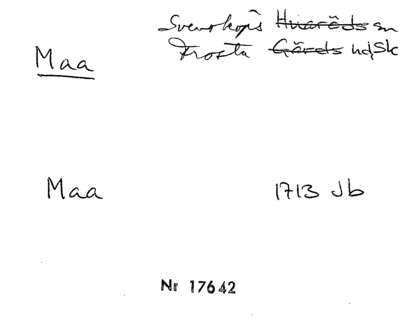 Svensköps Huaröds sn
Frosta Gärds hd, Sk
Maa
Maa 1713 Jb
Nr 17642